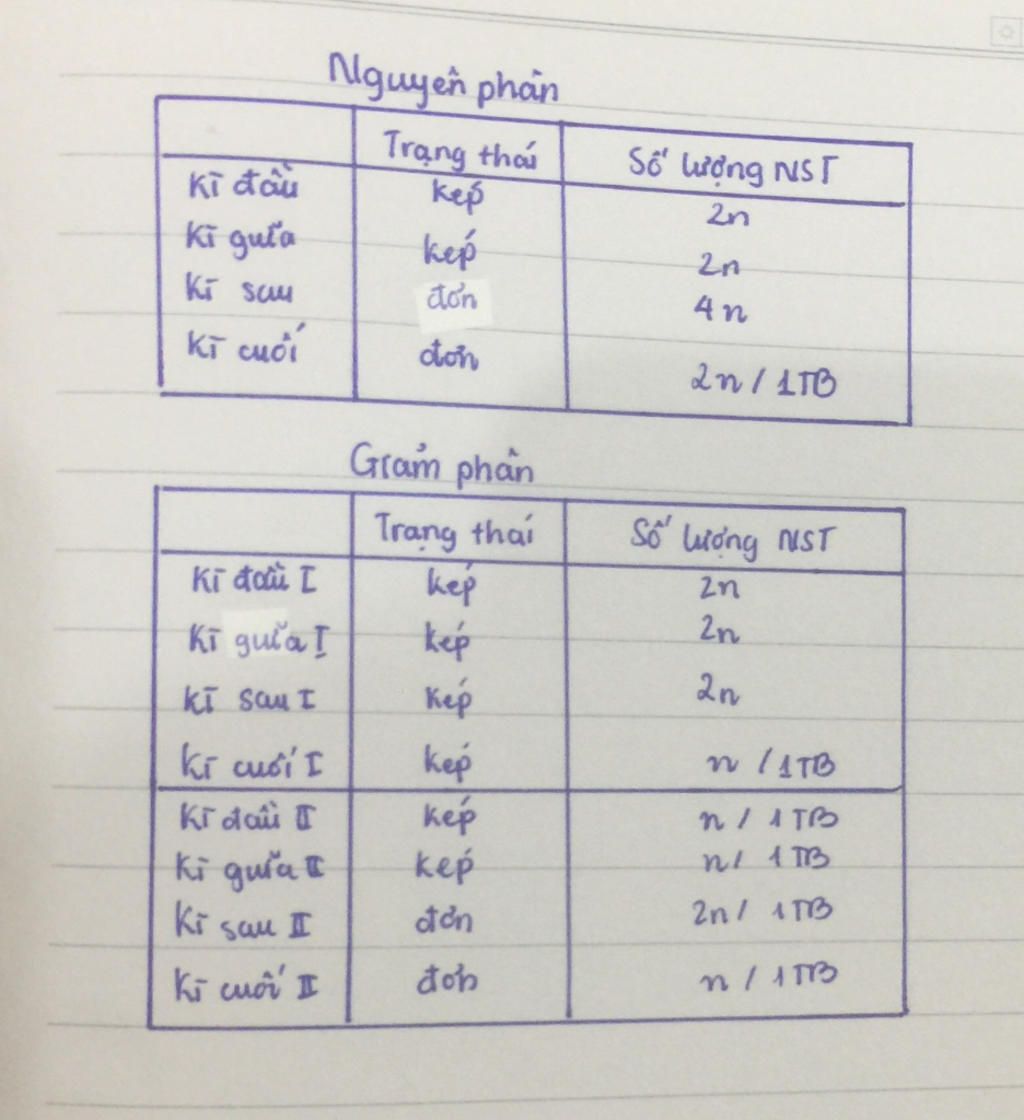 Nguyên phân
Trạng thái Số lượng NST
Kì đầu kép 2n
Kì giữa kép 2n
Kì sau đơn 4n
Kì cuối đơn 2n / 1TB
Giảm phân
Trạng thái Số lượng NST
Kì đầu I kép 2n
Kì giữa I kép 2n
Kì sau I kép 2n
Kì cuối I kép n / 1TB
Kì đầu II kép n / 1TB
Kì giữa II kép n / 1TB
Kì sau II đơn 2n / 1TB
Kì cuối II đơn n / 1TB